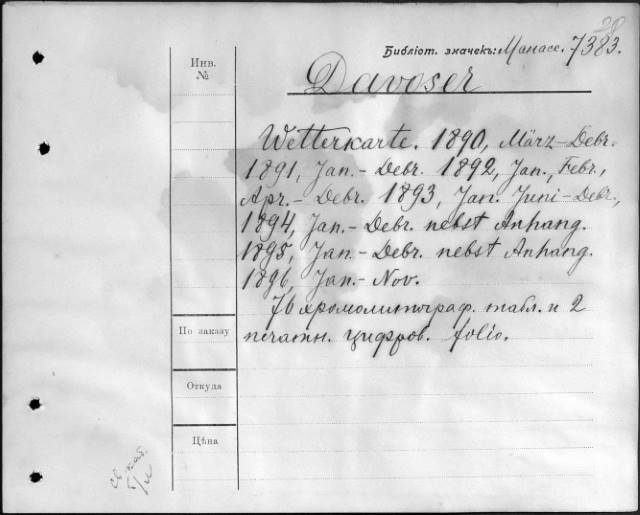 28
Библіот. значекъ: Манасе. 7383.
Инв.
№
Davoser
Wetterkarte. 1890, März-Debr.
1891, Jan.- Debr. 1892, Jan., Febr.,
Apr.- Debr. 1893, Jan. Juni-Debr.,
1894, Jan.- Debr. nebst Anhang.
1895, Jan.- Debr. nebst Anhang.
1896, Jan.- Nov.
76 хромолитограф. табл. и 2
По заказу
печатн. цифров. folio.
Откуда
Цѣна
каб.